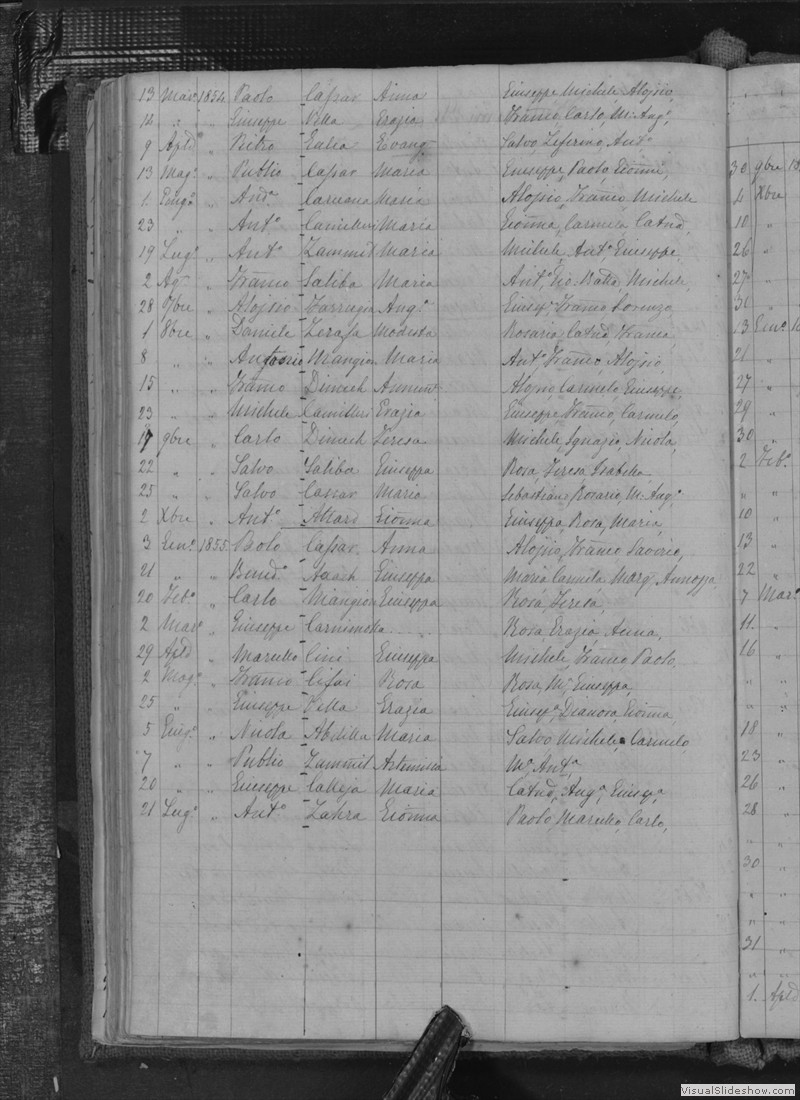 13 Mar. 1854 Paolo Cassar Anna Giuseppe Michele Alojsio,
14 " " Giuseppe Vella Grazia Franco, Carlo, M. Ang.ª,
9 Aple " Pietro Evang. Salvo Zeferino, Ant.º
13 Mag.º " Publio Cassar Maria Giuseppe, Paolo, Gionna,
1 Giug.º " And.ª Caruana Maria Alojsio, Franco, Michele
23 " " Ant.º Camilleri Maria Gionna, Carmela, Catnd,
19 Lug.º " Ant.º Zammit Maria Michele, Ant.º Giuseppe,
2 Ag. " Franco Saliba Maria Ant.º, Gio. Batta, Michele,
28 7bre " Alojsio Farrugia Ang.ª Giusep.ª Franco Lorenzo,
1 8bre " Daniele Zerafa Modesta Rosario, Catnd,
8 " " Antonio Mangion Maria Ant.º Franco, Alojsio,
15 " " Franco Dimech Alojsio, Carmelo, Giuseppe,
23 " " Michele Camilleri Grazia Giuseppe, Franco, Carmelo,
17 9bre " Carlo Dimech Teresa Michele, Ignazio, Nicola,
22 " " Salvo Saliba Giuseppa Rosa, Teresa, Isabella,
25 " " Salvo Cassar Maria Sebastiano, Rosario, M. Ang.ª
2 Xbre " Ant.º Attard Gionna Giuseppa, Rosa, Maria,
3 Gen.º 1855 Cassar Anna Alojsio, Franco Saverio,
21 " " Bened.º Giuseppa Maria Carmela Marg.
20 Feb.º " Carlo Mangion Giuseppa Rosa, Teresa,
2 Mar.º " Giuseppe Rosa, Grazia, Anna,
29 Aple " Marcello Cini Giuseppa Michele, Franco Paolo,
2 Mag.º " Franco Cifai Rosa Rosa, M.ª Giuseppa,
25 " " Giuseppe Vella Grazia Giusep.ª, Dianora, Gionna,
5 Giug.º " Nicola Abdilla Maria Salvo Michele Carmelo,
7 " " Publio Zammit Artemisia M.ª, Ant.ª,
20 " " Giuseppe Calleja Maria Catnd, Ang.ª, Giusep.ª
21 Lug.º " Ant.º Zahra Gionna Paolo, Marcello, Carlo,
30 9bre
4 Xbre
10 "
26 "
27 "
31 "
13 Gen.º
21 "
27 "
29 "
30 "
2 Feb.º
" "
10 "
13 "
22 "
7 Mar.º
11 "
16 "
" "
" "
18 "
23 "
26 "
28 "
" "
30 "
" "
" "
31 "
" "
1. Aple
VisualSlideshow.com